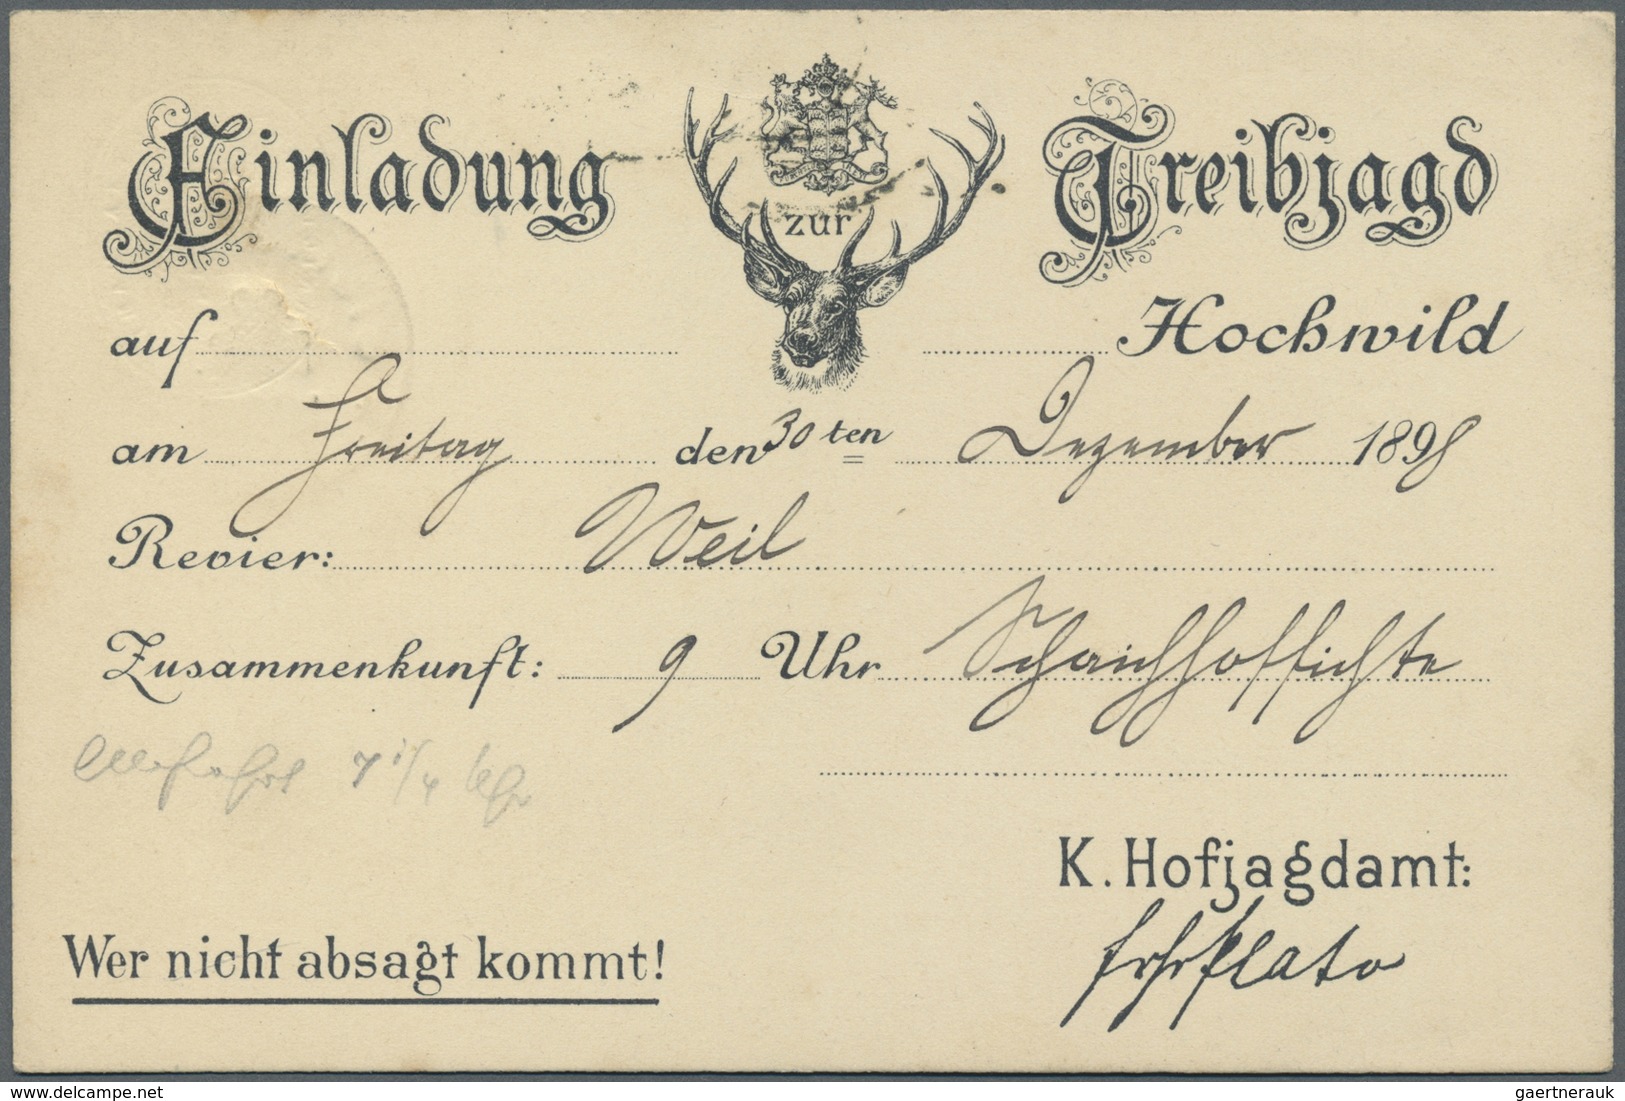 Einladung zur Treibjagd
auf Hochwild
am Freitag den 30 ten Dezember 1898
Revier: Weil
Zusammenkunft: 9 Uhr Schaichhoffichte
7 1/4 Uhr
K. Hofjagdamt:
Wer nicht absagt kommt!
Frhr Plato
gaertnerauk / delcampe.net